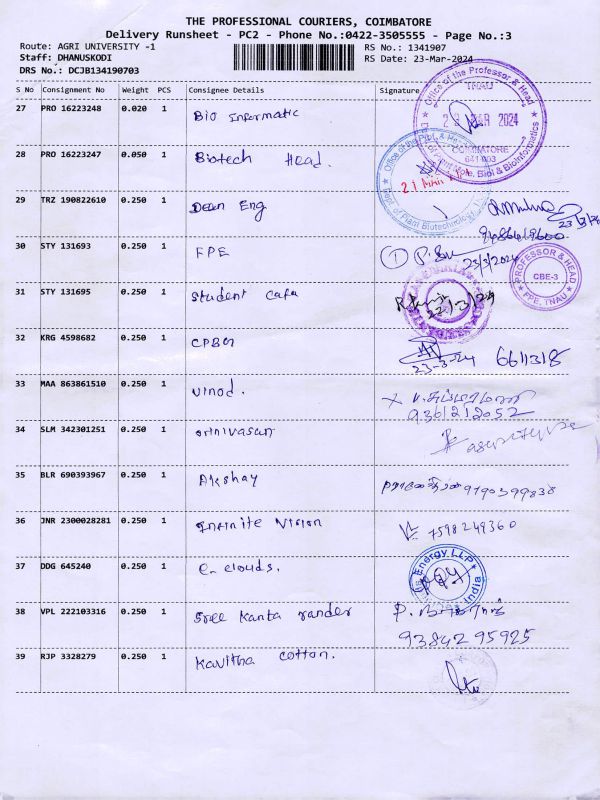 THE PROFESSIONAL COURIERS, COIMBATORE
Delivery Runsheet - PC2 - Phone No.:0422-3505555 - Page No.:3
Route: AGRI UNIVERSITY -1
RS No.: 1341907
Staff: DHANUSKODI
RS Date: 23-Mar-2024
DRS No.: DCJB134190703
S No Consignment No Weight PCS Consignee Details Signature
27 PRO 16223248 0.020 1 Bio Informatic
Office of the Professor & Head
TNAU
MAR 2024
COIMBATORE
641 003
28 PRO 16223247 0.050 1 Biotech Head.
21 MAR
Dept of Plant Biotechnology
29 TRZ 190822610 0.250 1 Dean Eng
30 STY 131693 0.250 1 FPE
23/3/2024
PROFESSOR & HEAD
CBE-3
FPE, TNAU
31 STY 131695 0.250 1 Student Cafa
22/3/24
32 KRG 4598682 0.250 1 CPBG
23-3-24 6611318
33 MAA 863861510 0.250 1 Vinod.
9361212052
34 SLM 342301251 0.250 1 Srinivasan
35 BLR 690393967 0.250 1 Akshay
36 JNR 2300028281 0.250 1 Infinite Vision
7598249360
37 DDG 645240 0.250 1 e-clouds.
Energy LLP
India
38 VPL 222103316 0.250 1 Sree Kanta rander
93842 95925
39 RJP 3328279 0.250 1 Kavitha cotton.